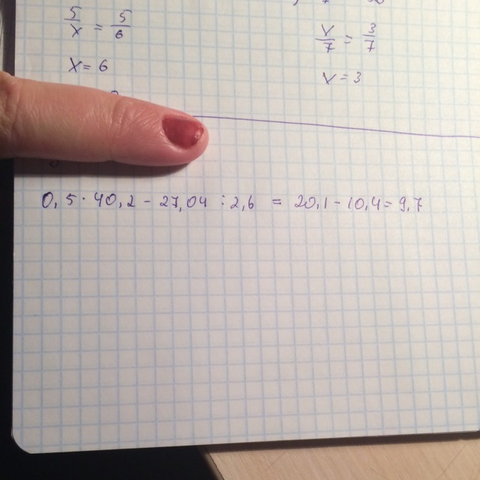 5/x = 5/6
x = 6
v/7 = 3/7
v = 3
0,5 · 40,2 - 27,04 : 2,6 = 20,1 - 10,4 = 9,7